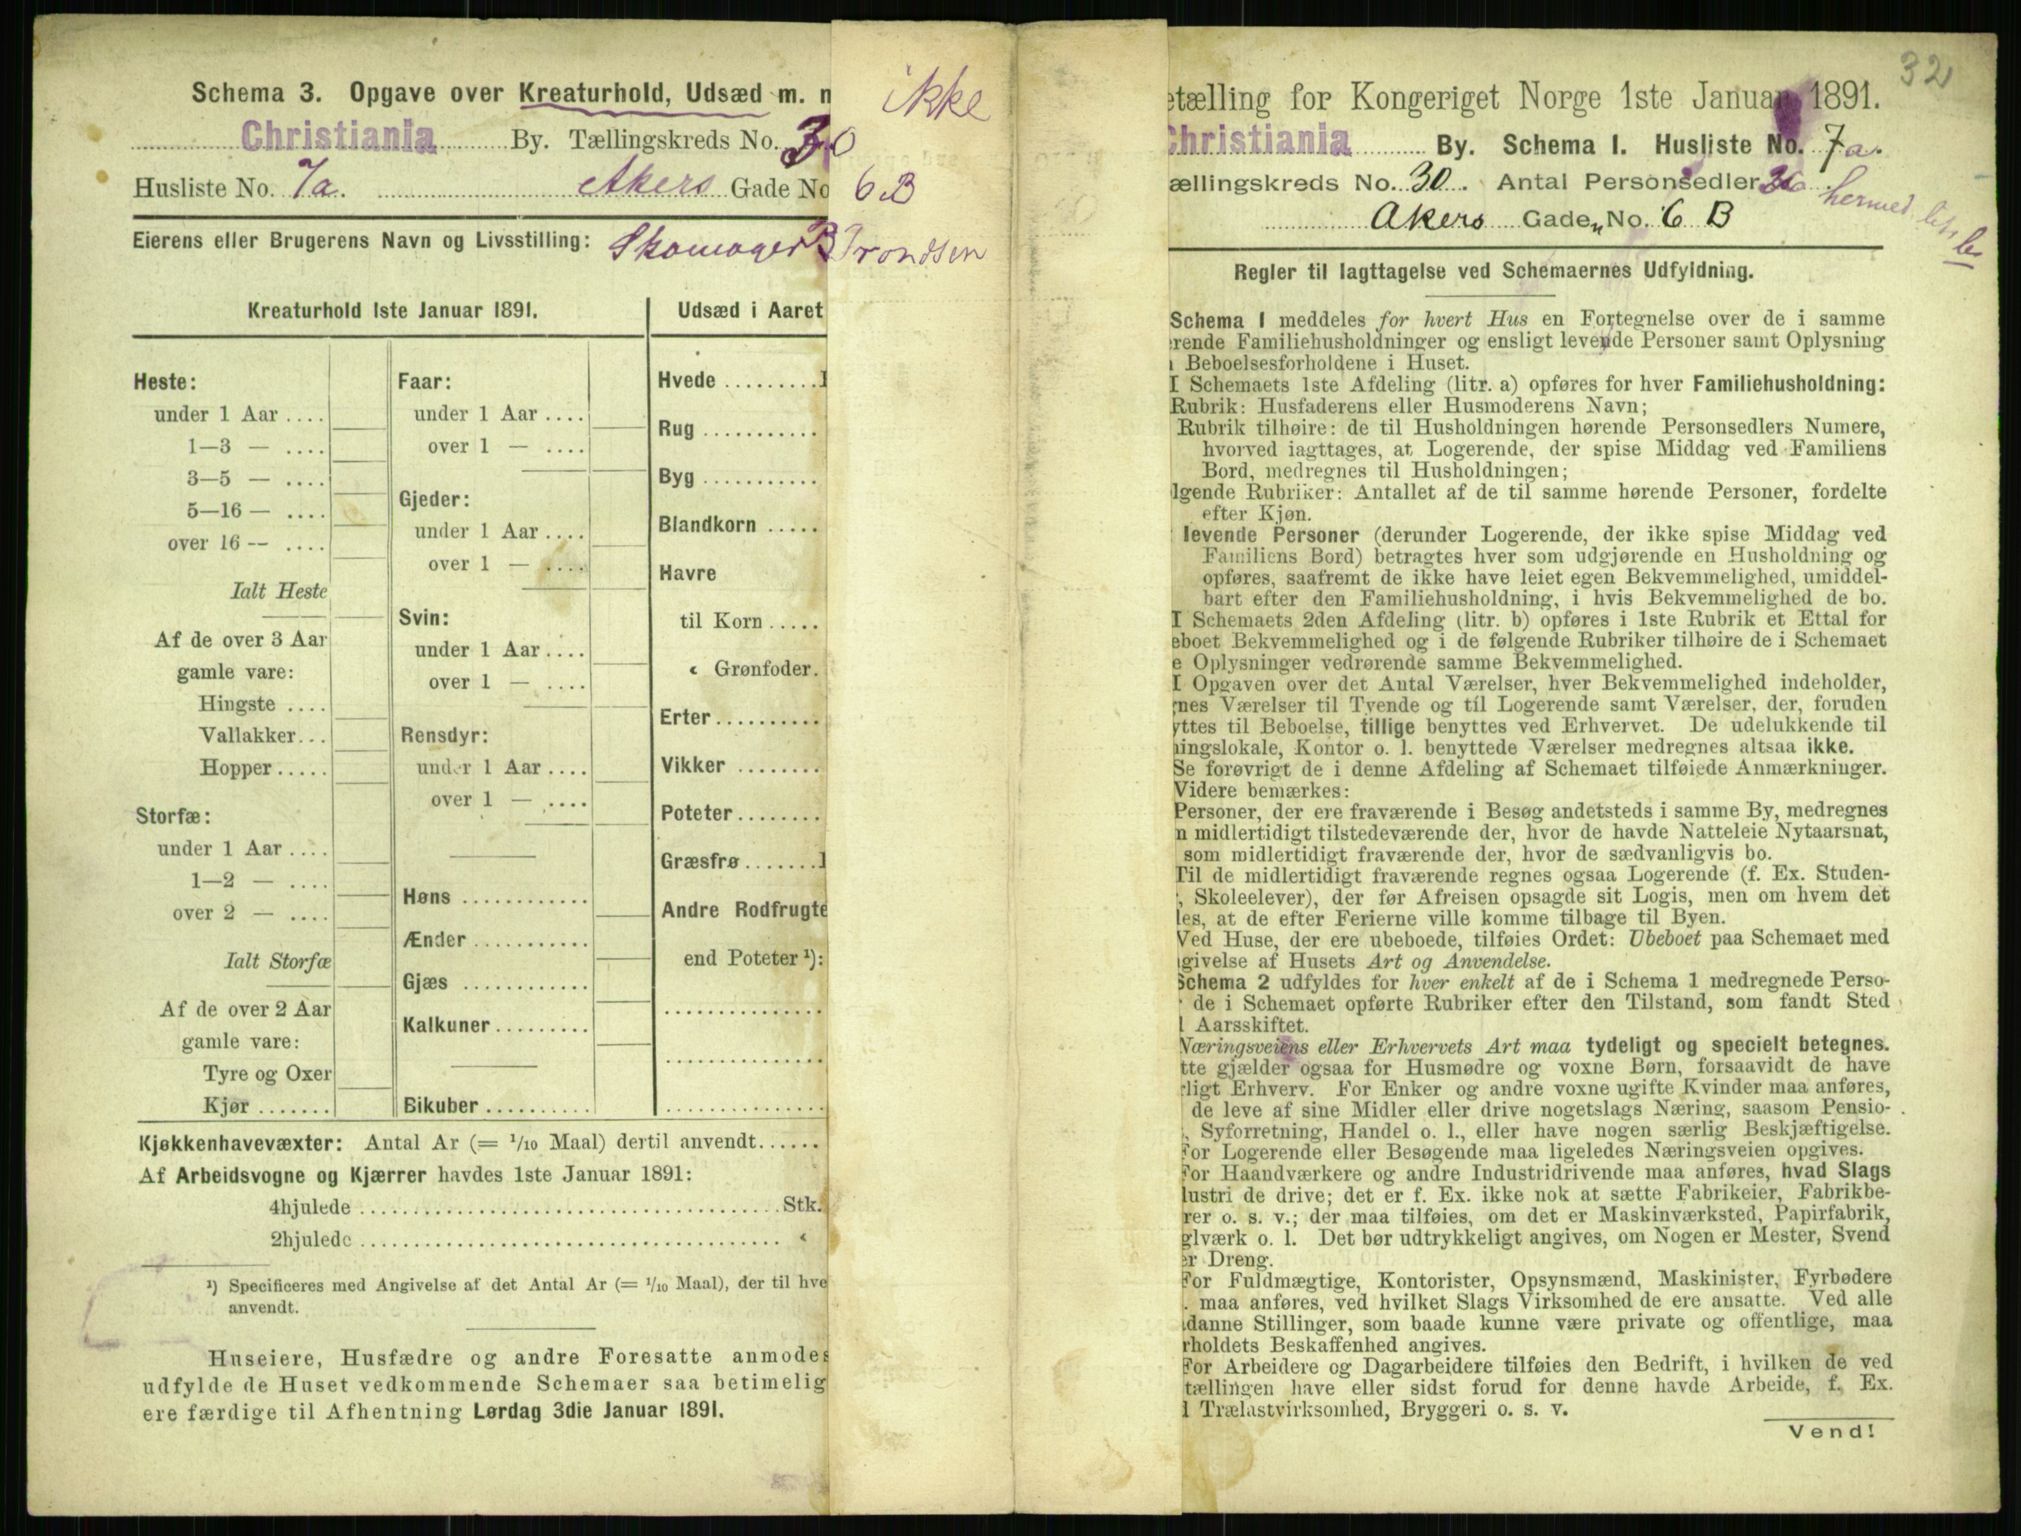 Schema 3. Opgave over Kreaturhold, Udsæd m. n
ikke
Christiania By. Tællingskreds No. 30
Husliste No. 7a. Akers Gade No 6 B
Eierens eller Brugerens Navn og Livsstilling: Skomager B Trondsen
Kreaturhold 1ste Januar 1891.
Heste:
under 1 Aar ....
1—3 — ....
3—5 — ....
5—16 — ....
over 16 — ....
Ialt Heste
Af de over 3 Aar
gamle vare:
Hingste ....
Vallakker...
Hopper .....
Storfæ:
under 1 Aar ....
1—2 — ....
over 2 — ....
Ialt Storfæ
Af de over 2 Aar
gamle vare:
Tyre og Oxer
Kjør .......
Faar:
under 1 Aar ....
over 1 — ....
Gjeder:
under 1 Aar ....
over 1 — ....
Svin:
under 1 Aar ....
over 1 — ....
Rensdyr:
under 1 Aar ....
over 1 — ....
Høns ............
Ænder ...........
Gjæs ............
Kalkuner.........
Bikuber ..........
Udsæd i Aaret
Hvede .........
Rug ...........
Byg ...........
Blandkorn .....
Havre
til Korn .....
« Grønfoder.
Erter..........
Vikker ........
Poteter ........
Græsfrø .......
Andre Rodfrugte
end Poteter ¹):
Kjøkkenhavevæxter: Antal Ar (= 1/10 Maal) dertil anvendt......
Af Arbeidsvogne og Kjærrer havdes 1ste Januar 1891:
4hjulede ........................................ Stk.
2hjulede ........................................ «
¹) Specificeres med Angivelse af det Antal Ar (= 1/10 Maal), der til hve
anvendt.
Huseiere, Husfædre og andre Foresatte anmodes
udfylde de Huset vedkommende Schemaer saa betimelig
ere færdige til Afhentning Lørdag 3die Januar 1891.
32
etælling for Kongeriget Norge 1ste Januar 1891.
Christiania By. Schema 1. Husliste No. 7a.
ællingskreds No. 30. Antal Personsedler
hermed
Akers Gade No. 6 B
Regler til Iagttagelse ved Schemaernes Udfyldning.
Schema 1 meddeles for hvert Hus en Fortegnelse over de i samme
erende Familiehusholdninger og ensligt levende Personer samt Oplysning
Beboelsesforholdene i Huset.
I Schemaets 1ste Afdeling (litr. a) opføres for hver Familiehusholdning:
Rubrik: Husfaderens eller Husmoderens Navn;
Rubrik tilhøire: de til Husholdningen hørende Personsedlers Numere,
hvorved iagttages, at Logerende, der spise Middag ved Familiens
Bord, medregnes til Husholdningen;
lgende Rubriker: Antallet af de til samme hørende Personer, fordelte
efter Kjøn.
levende Personer (derunder Logerende, der ikke spise Middag ved
Familiens Bord) betragtes hver som udgjørende en Husholdning og
opføres, saafremt de ikke have leiet egen Bekvemmelighed, umiddel-
bart efter den Familiehusholdning, i hvis Bekvemmelighed de bo.
I Schemaets 2den Afdeling (litr. b) opføres i 1ste Rubrik et Ettal for
eboet Bekvemmelighed og i de følgende Rubriker tilhøire de i Schemaet
e Oplysninger vedrørende samme Bekvemmelighed.
I Opgaven over det Antal Værelser, hver Bekvemmelighed indeholder,
gnes Værelser til Tyende og til Logerende samt Værelser, der, foruden
yttes til Beboelse, tillige benyttes ved Erhvervet. De udelukkende til
ningslokale, Kontor o. l. benyttede Værelser medregnes altsaa ikke.
Se forøvrigt de i denne Afdeling af Schemaet tilføiede Anmærkninger.
Videre bemærkes:
Personer, der ere fraværende i Besøg andetsteds i samme By, medregnes
n midlertidigt tilstedeværende der, hvor de havde Natteleie Nytaarsnat,
som midlertidigt fraværende der, hvor de sædvanligvis bo.
Til de midlertidigt fraværende regnes ogsaa Logerende (f. Ex. Studen-
, Skoleelever), der før Afreisen opsagde sit Logis, men om hvem det
les, at de efter Ferierne ville komme tilbage til Byen.
Ved Huse, der ere ubeboede, tilføies Ordet: Ubeboet paa Schemaet med
givelse af Husets Art og Anvendelse.
Schema 2 udfyldes for hver enkelt af de i Schema 1 medregnede Perso-
de i Schemaet opførte Rubriker efter den Tilstand, som fandt Sted
l Aarsskiftet.
Næringsveiens eller Erhvervets Art maa tydeligt og specielt betegnes.
tte gjælder ogsaa for Husmødre og voxne Børn, forsaavidt de have
rligt Erhverv. For Enker og andre voxne ugifte Kvinder maa anføres,
de leve af sine Midler eller drive nogetslags Næring, saasom Pensio-
, Syforretning, Handel o. l., eller have nogen særlig Beskjæftigelse.
For Logerende eller Besøgende maa ligeledes Næringsveien opgives.
For Haandværkere og andre Industridrivende maa anføres, hvad Slags
lustri de drive; det er f. Ex. ikke nok at sætte Fabrikeier, Fabrikbe-
rer o. s. v.; der maa tilføies, om det er Maskinværksted, Papirfabrik,
glværk o. l. Det bør udtrykkeligt angives, om Nogen er Mester, Svend
er Dreng.
For Fuldmægtige, Kontorister, Opsynsmænd, Maskinister, Fyrbødere
. maa anføres, ved hvilket Slags Virksomhed de ere ansatte. Ved alle
danne Stillinger, som baade kunne være private og offentlige, maa
rholdets Beskaffenhed angives.
For Arbeidere og Dagarbeidere tilføies den Bedrift, i hvilken de ved
tællingen have eller sidst forud for denne havde Arbeide, f. Ex.
l Trælastvirksomhed, Bryggeri o. s. v.
Vend!